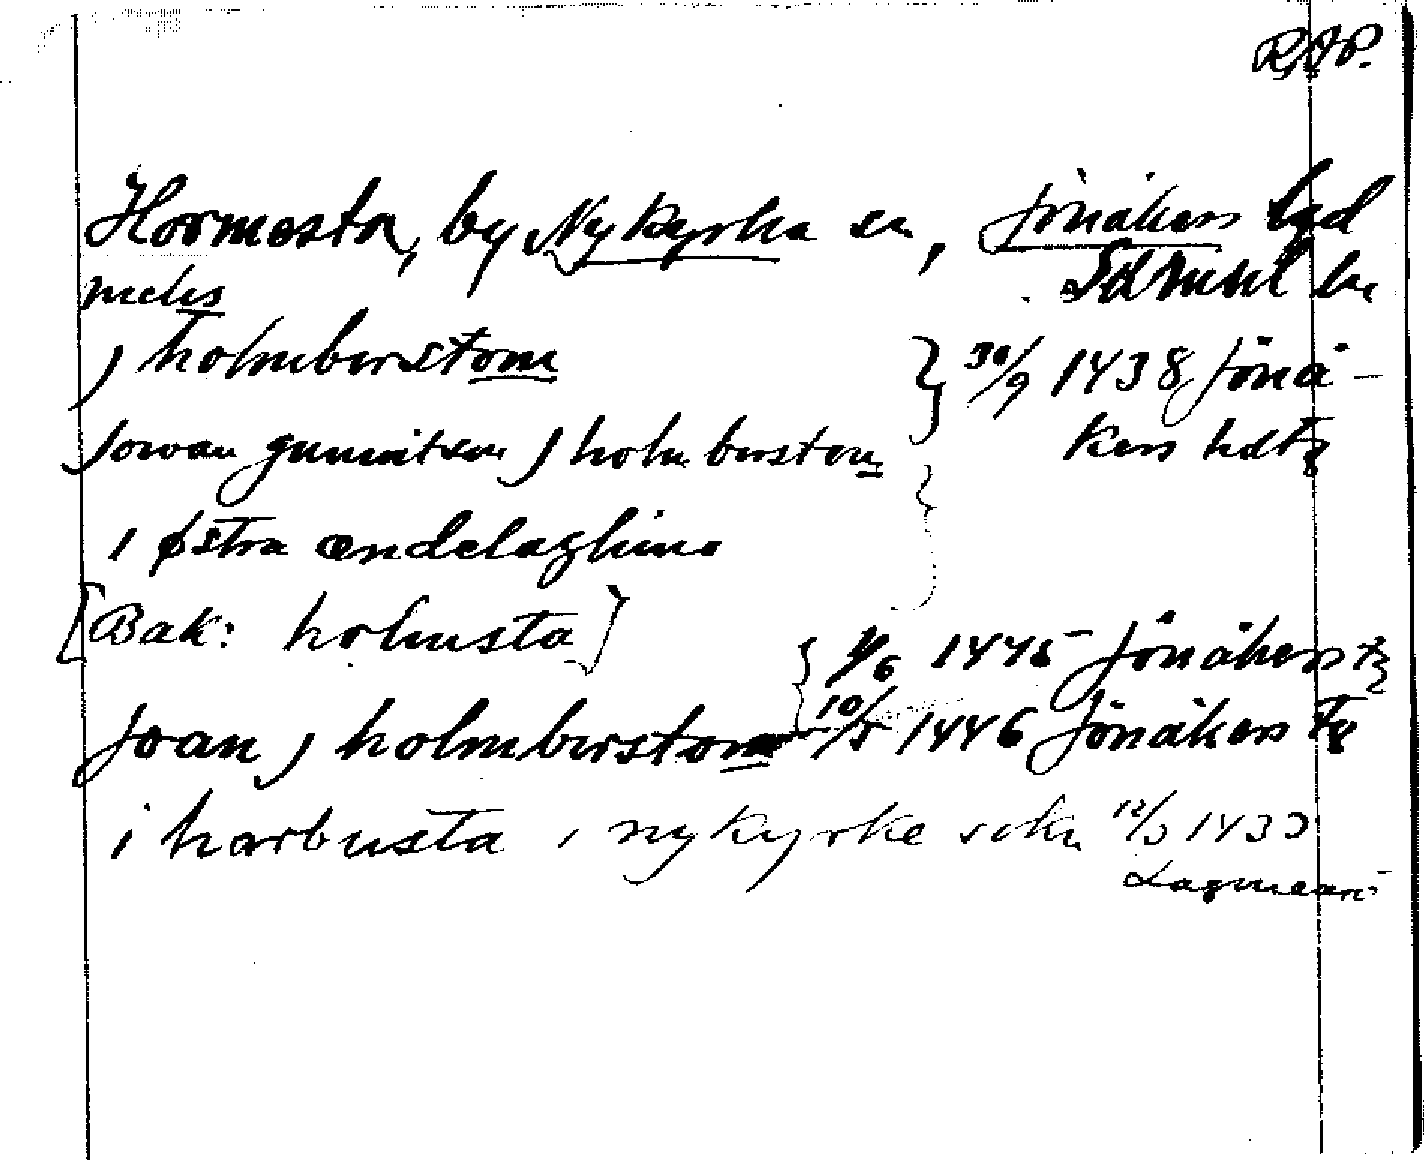 RAP.
Hormesta, by Nykyrka sn, Jönåkers hd
Södml län
j holmberstom } 30/9 1438 Jönå-
Jowan gunnitzson j holmberstom kers hdtg
i østra ændelaghino
[Bak: holmsta]
1/6 1445 Jönåkers tg
Joan j holmberstom 10/5 1446 Jönåkers tg
i harbusta i nykyrke sokn
Lagmaan-